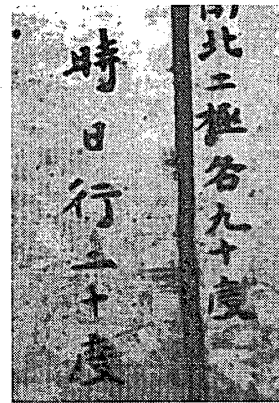 南北二極各九十度
時日行三十度